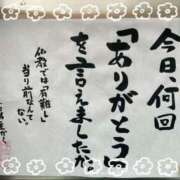 今日、何回
「ありがとう」
を言えましたか
仏教では「有難し」
当り前なんて
ない。